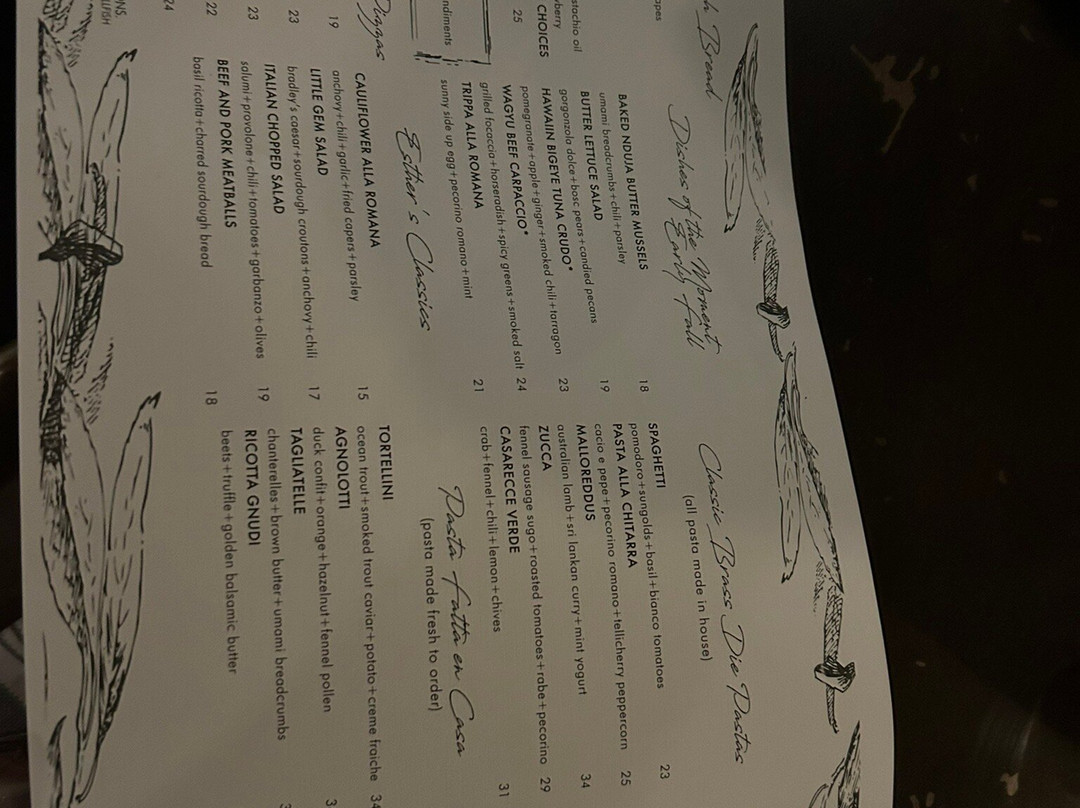 h Bread
opes
stachio oil
berry
CHOICES
25
ndiments
Pizzas
19
23
23
22
24
NS,
LLFISH
Dishes of the Moment
Early Fall
BAKED NDUJA BUTTER MUSSELS 18
umami breadcrumbs+chili+parsley
BUTTER LETTUCE SALAD 19
gorgonzola dolce+bosc pears+candied pecans
HAWAIIN BIGEYE TUNA CRUDO* 23
pomegranate+apple+ginger+smoked chili+tarragon
WAGYU BEEF CARPACCIO* 24
grilled focaccia+horseradish+spicy greens+smoked salt
TRIPPA ALLA ROMANA 21
sunny side up egg+pecorino romano+mint
Esther's Classics
CAULIFLOWER ALLA ROMANA 15
anchovy+chili+garlic+fried capers+parsley
LITTLE GEM SALAD 17
bradley's caesar+sourdough croutons+anchovy+chili
ITALIAN CHOPPED SALAD 19
salumi+provolone+chili+tomatoes+garbanzo+olives
BEEF AND PORK MEATBALLS 18
basil ricotta+charred sourdough bread
Classic Brass Die Pastas
(all pasta made in house)
SPAGHETTI 23
pomodoro+sungolds+basil+bianco tomatoes
PASTA ALLA CHITARRA 25
cacio e pepe+pecorino romano+tellicherry peppercorn
MALLOREDDUS 34
australian lamb+sri lankan curry+mint yogurt
ZUCCA 29
fennel sausage sugo+roasted tomatoes+rabe+pecorino
CASARECCE VERDE 31
crab+fennel+chili+lemon+chives
Pasta Fatta en Casa
(pasta made fresh to order)
TORTELLINI 34
ocean trout+smoked trout caviar+potato+creme fraiche
AGNOLOTTI 3
duck confit+orange+hazelnut+fennel pollen
TAGLIATELLE 3
chanterelles+brown butter+umami breadcrumbs
RICOTTA GNUDI
beets+truffle+golden balsamic butter